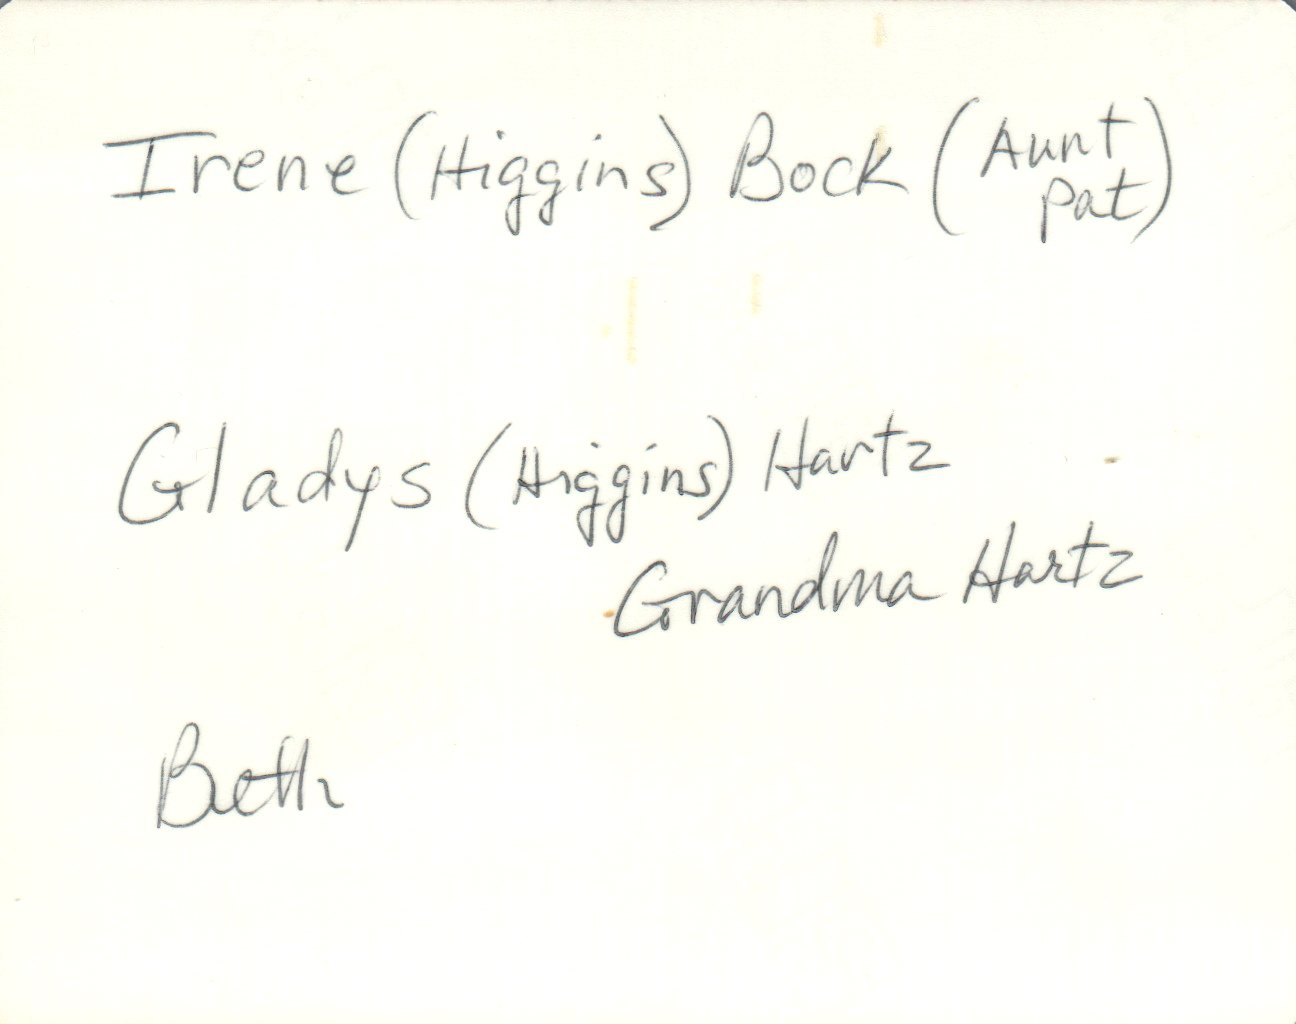 Irene (Higgins) Bock (Aunt Pat)
Gladys (Higgins) Hartz
Grandma Hartz
Beth